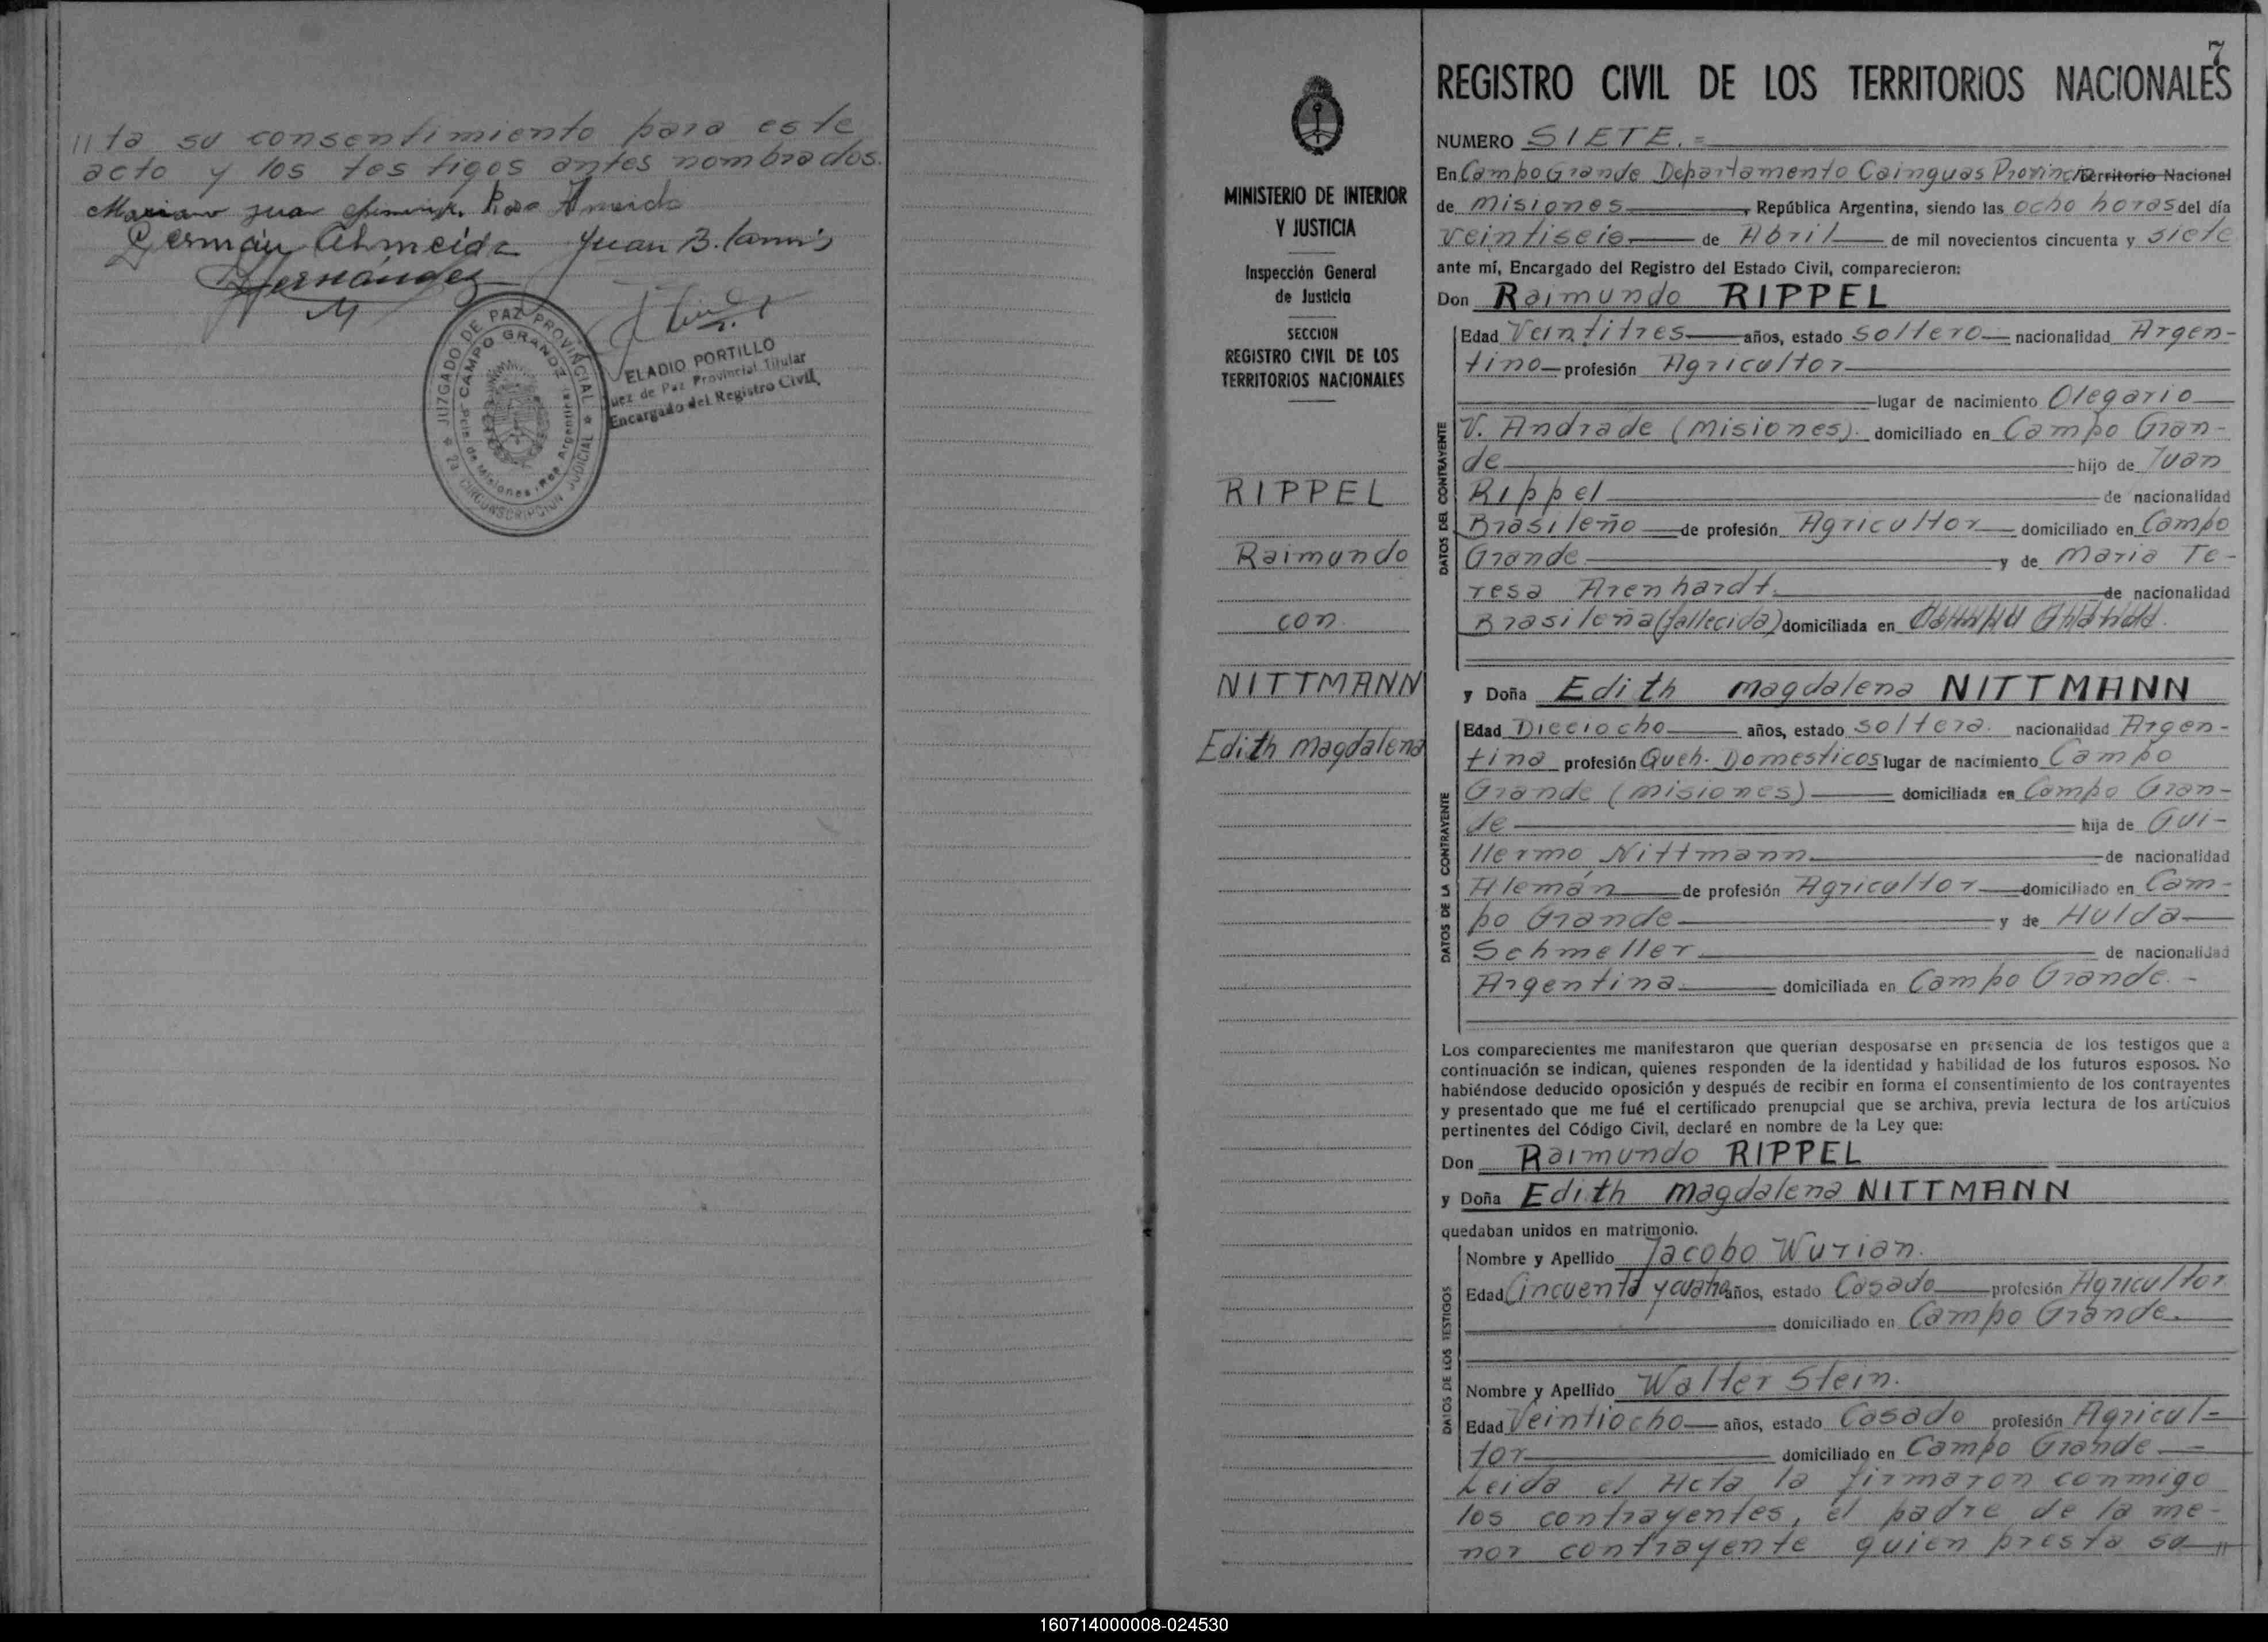 //ta su consentimiento para este
acto y los testigos antes nombrados.
Mariano Juan Rosa Almeida
German Almeida Juan B.
Hernández
JUZGADO DE PAZ PROVINCIAL
CAMPO GRANDE
Pcia. de Misiones - Rep. Argentina
2a CIRCUNSCRIPCION JUDICIAL
ELADIO PORTILLO
Juez de Paz Provincial Titular
Encargado del Registro Civil
MINISTERIO DE INTERIOR
Y JUSTICIA
Inspección General
de Justicia
SECCION
REGISTRO CIVIL DE LOS
TERRITORIOS NACIONALES
RIPPEL
Raimundo
con
NITTMANN
Edith Magdalena
7
REGISTRO CIVIL DE LOS TERRITORIOS NACIONALES
NUMERO SIETE.=
En Campo Grande Departamento Cainguas Provincia Territorio Nacional
de Misiones, República Argentina, siendo las ocho horas del día
veintiseis de Abril de mil novecientos cincuenta y siete
ante mí, Encargado del Registro del Estado Civil, comparecieron:
Don Raimundo RIPPEL
DATOS DEL CONTRAYENTE
Edad Veintitres años, estado soltero nacionalidad Argen-
tino profesión Agricultor
lugar de nacimiento Olegario
V. Andrade (Misiones). domiciliado en Campo Gran-
de hijo de Juan
Rippel de nacionalidad
Brasileño de profesión Agricultor domiciliado en Campo
Grande y de Maria Te-
resa Arenhardt. de nacionalidad
Brasileña (fallecida) domiciliada en Campo Grande.
y Doña Edith Magdalena NITTMANN
DATOS DE LA CONTRAYENTE
Edad Dieciocho años, estado soltera. nacionalidad Argen-
tina profesión Queh. Domesticos lugar de nacimiento Campo
Grande (Misiones) domiciliada en Campo Gran-
de hija de Gui-
llermo Nittmann de nacionalidad
Alemán de profesión Agricultor domiciliado en Cam-
po Grande y de Hulda
Schmeller de nacionalidad
Argentina domiciliada en Campo Grande.-
Los comparecientes me manifestaron que querían desposarse en presencia de los testigos que a
continuación se indican, quienes responden de la identidad y habilidad de los futuros esposos. No
habiéndose deducido oposición y después de recibir en forma el consentimiento de los contrayentes
y presentado que me fué el certificado prenupcial que se archiva, previa lectura de los artículos
pertinentes del Código Civil, declaré en nombre de la Ley que:
Don Raimundo RIPPEL
y Doña Edith Magdalena NITTMANN
quedaban unidos en matrimonio.
DATOS DE LOS TESTIGOS
Nombre y Apellido Jacobo Wurian.
Edad Cincuenta y cuatro años, estado Casado profesión Agricultor
domiciliado en Campo Grande.
Nombre y Apellido Walter Stein.
Edad Veintiocho años, estado Casado profesión Agricul-
tor domiciliado en Campo Grande
Leida el Acta la firmaron conmigo
los contrayentes, el padre de la me-
nor contrayente quien presta su //
160714000008-024530